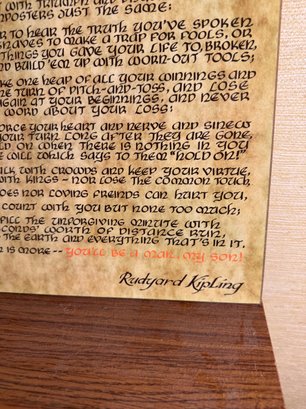 WITH TRIUMPH AND
MPOSTERS JUST THE SAME:
R TO HEAR THE TRUTH YOU'VE SPOKEN
KNAVES TO MAKE A TRAP FOR FOOLS, OR
THINGS YOU GAVE YOUR LIFE TO, BROKEN,
ND BUILD 'EM UP WITH WORN-OUT TOOLS;
KE ONE HEAP OF ALL YOUR WINNINGS AND
NE TURN OF PITCH-AND-TOSS, AND LOSE
GAIN AT YOUR BEGINNINGS, AND NEVER
WORD ABOUT YOUR LOSS:
ORCE YOUR HEART AND NERVE AND SINEW
YOUR TURN LONG AFTER THEY ARE GONE,
LD ON WHEN THERE IS NOTHING IN YOU
E WILL WHICH SAYS TO THEM "HOLD ON!"
LK WITH CROWDS AND KEEP YOUR VIRTUE,
WITH KINGS - NOR LOSE THE COMMON TOUCH,
OES NOR LOVING FREINDS CAN HURT YOU,
COUNT WITH YOU BUT NONE TOO MUCH;
FILL THE UNFORGIVING MINUTE WITH
CONDS' WORTH OF DISTANCE RUN,
THE EARTH AND EVERYTHING THAT'S IN IT,
IS MORE -- YOU'LL BE A MAN, MY SON!
Rudyard Kipling